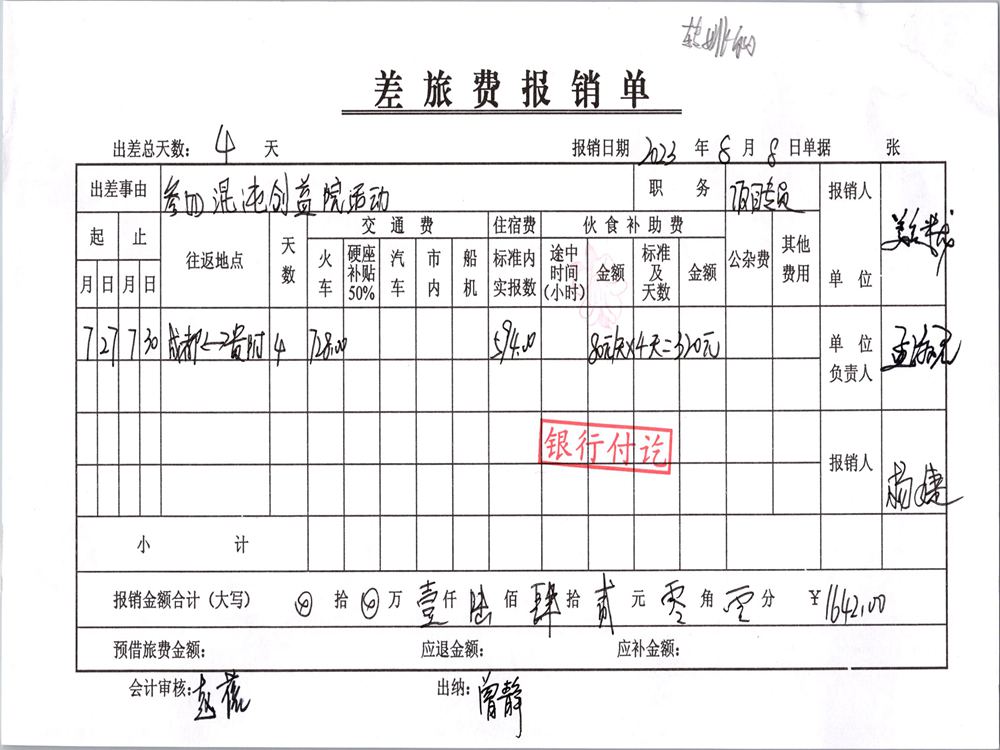 差旅费报销单
出差总天数： 4 天 报销日期 2023 年 8 月 8 日单据 张
出差事由 参加混沌创益院活动 职 务 项目专员 报销人
起 止 往返地点 天数 交通费 住宿费 伙食补助费 公杂费 其他费用 单 位
月 日 月 日 火车 硬座补贴50% 汽车 市内 船机 标准内实报数 途中时间(小时) 金额 标准及天数 金额
7 27 7 30 成都<->贵阳 4 728.00 594.00 80元/天×4天=320元 单 位
负责人
银行付讫
报销人 杨捷
小 计
报销金额合计（大写） ⊗ 拾 ⊗ 万 壹 仟 陆 佰 肆 拾 贰 元 零 角 零 分 ￥1642.00
预借旅费金额： 应退金额： 应补金额：
会计审核： 出纳： 曾静